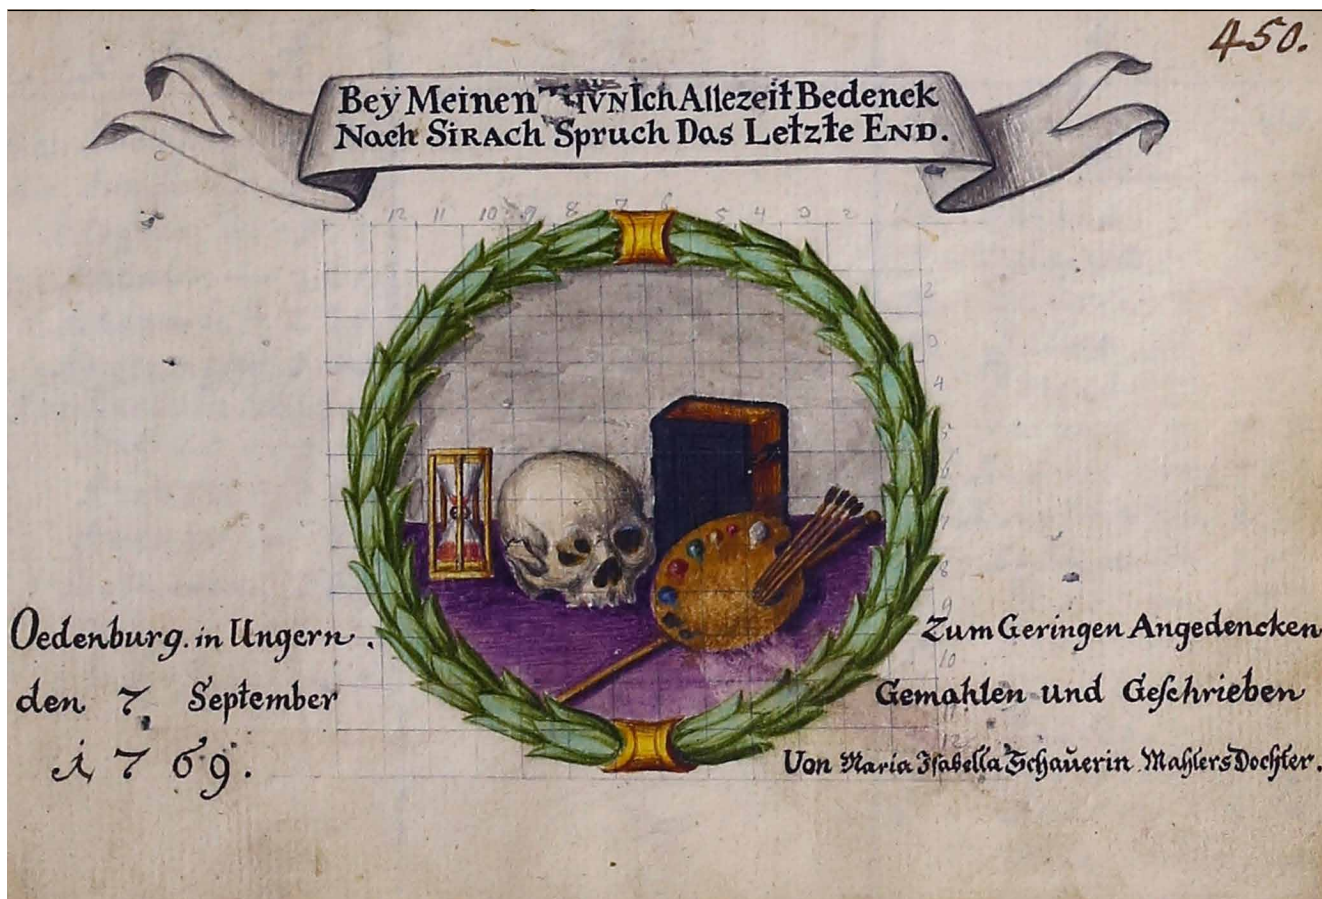 450.
Beÿ Meinen Ich Allezeit Bedenck
Nach SIRACH Spruch Das Letzte END.
12 11 10 9 8 7 6 5 4 3 2 1
2
3
4
5
6
7
8
9
10
12
Oedenburg. in Ungern.
den 7 September
1769.
Zum Geringen Angedencken
Gemahlen und Geſchrieben
Von Maria Iſabella Schauerin Mahlers Dochter.